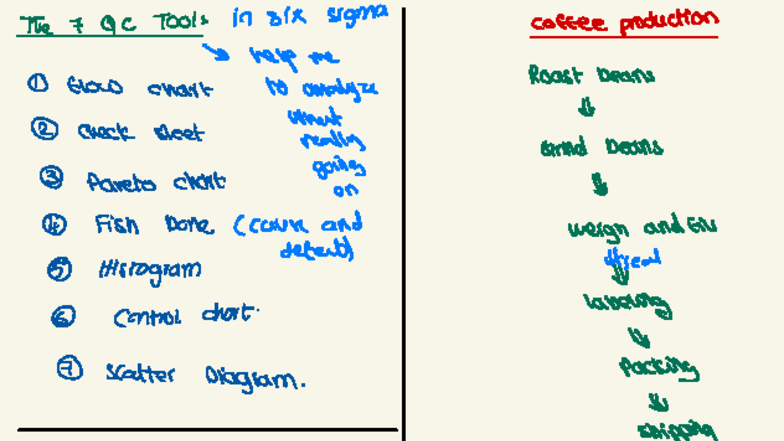 The 7 QC Tools in six sigma
help me
to analyze
what
really
going
on
① Flow chart
② Check sheet
③ Pareto chart
④ Fish bone (cause and
defect)
⑤ Histogram
⑥ Control chart
⑦ Scatter Diagram.
Coffee production
Roast beans
Grind beans
weigh and
labeling
Packing
shipping